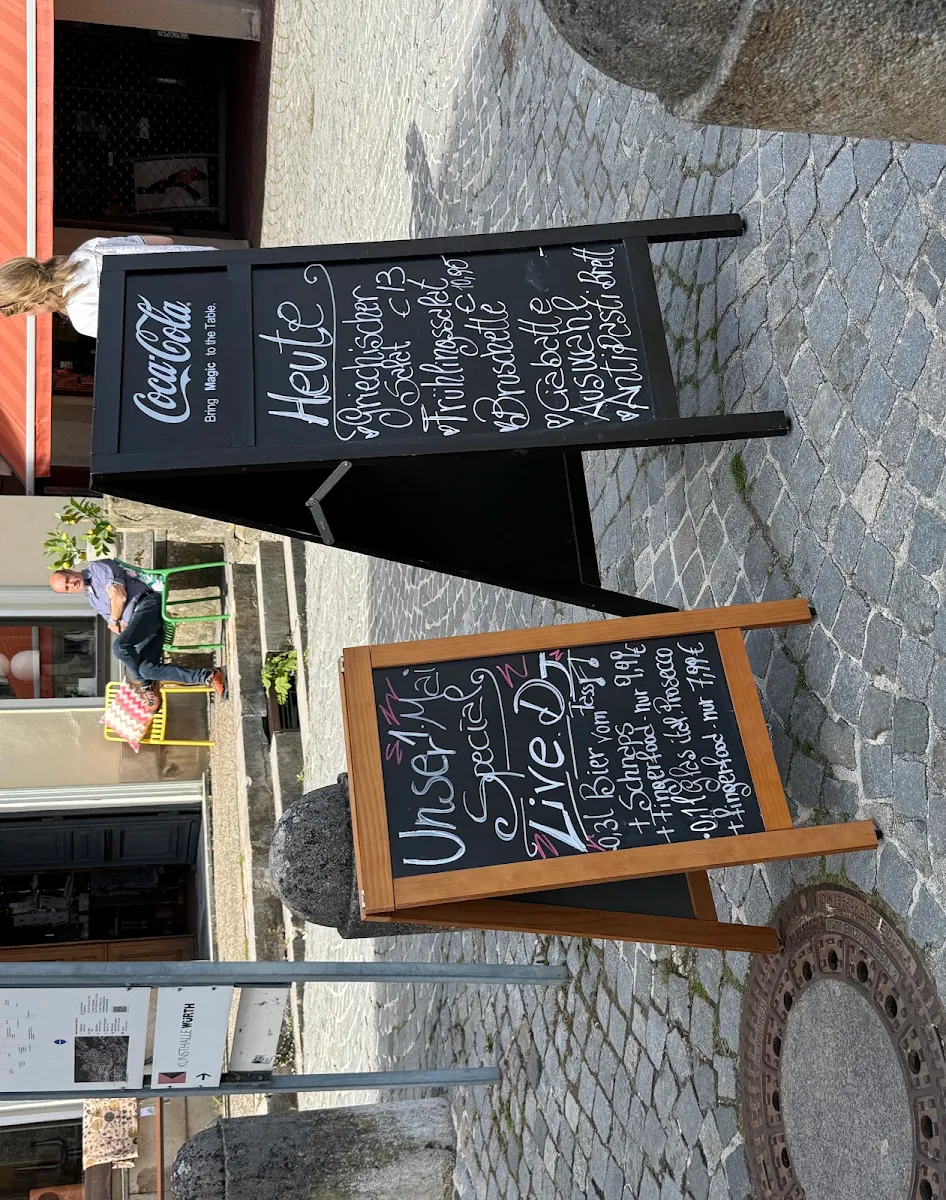 Coca-Cola
Bring Magic to the Table.
Heute
Griechischer
Salat € 13
Frühlingssalat
€ 10,90
Bruschette
Ciabatte
Auswahl
Antipasti Brett
Unser 1 Mai
Special
Live. DJ
0,3l Bier vom Fass
+ Schnaps
+ Fingerfood. nur 9,99€
0,1l Glas Prosecco
+ fingerfood nur 7,99€
KUNSTHALLE WÜRTH